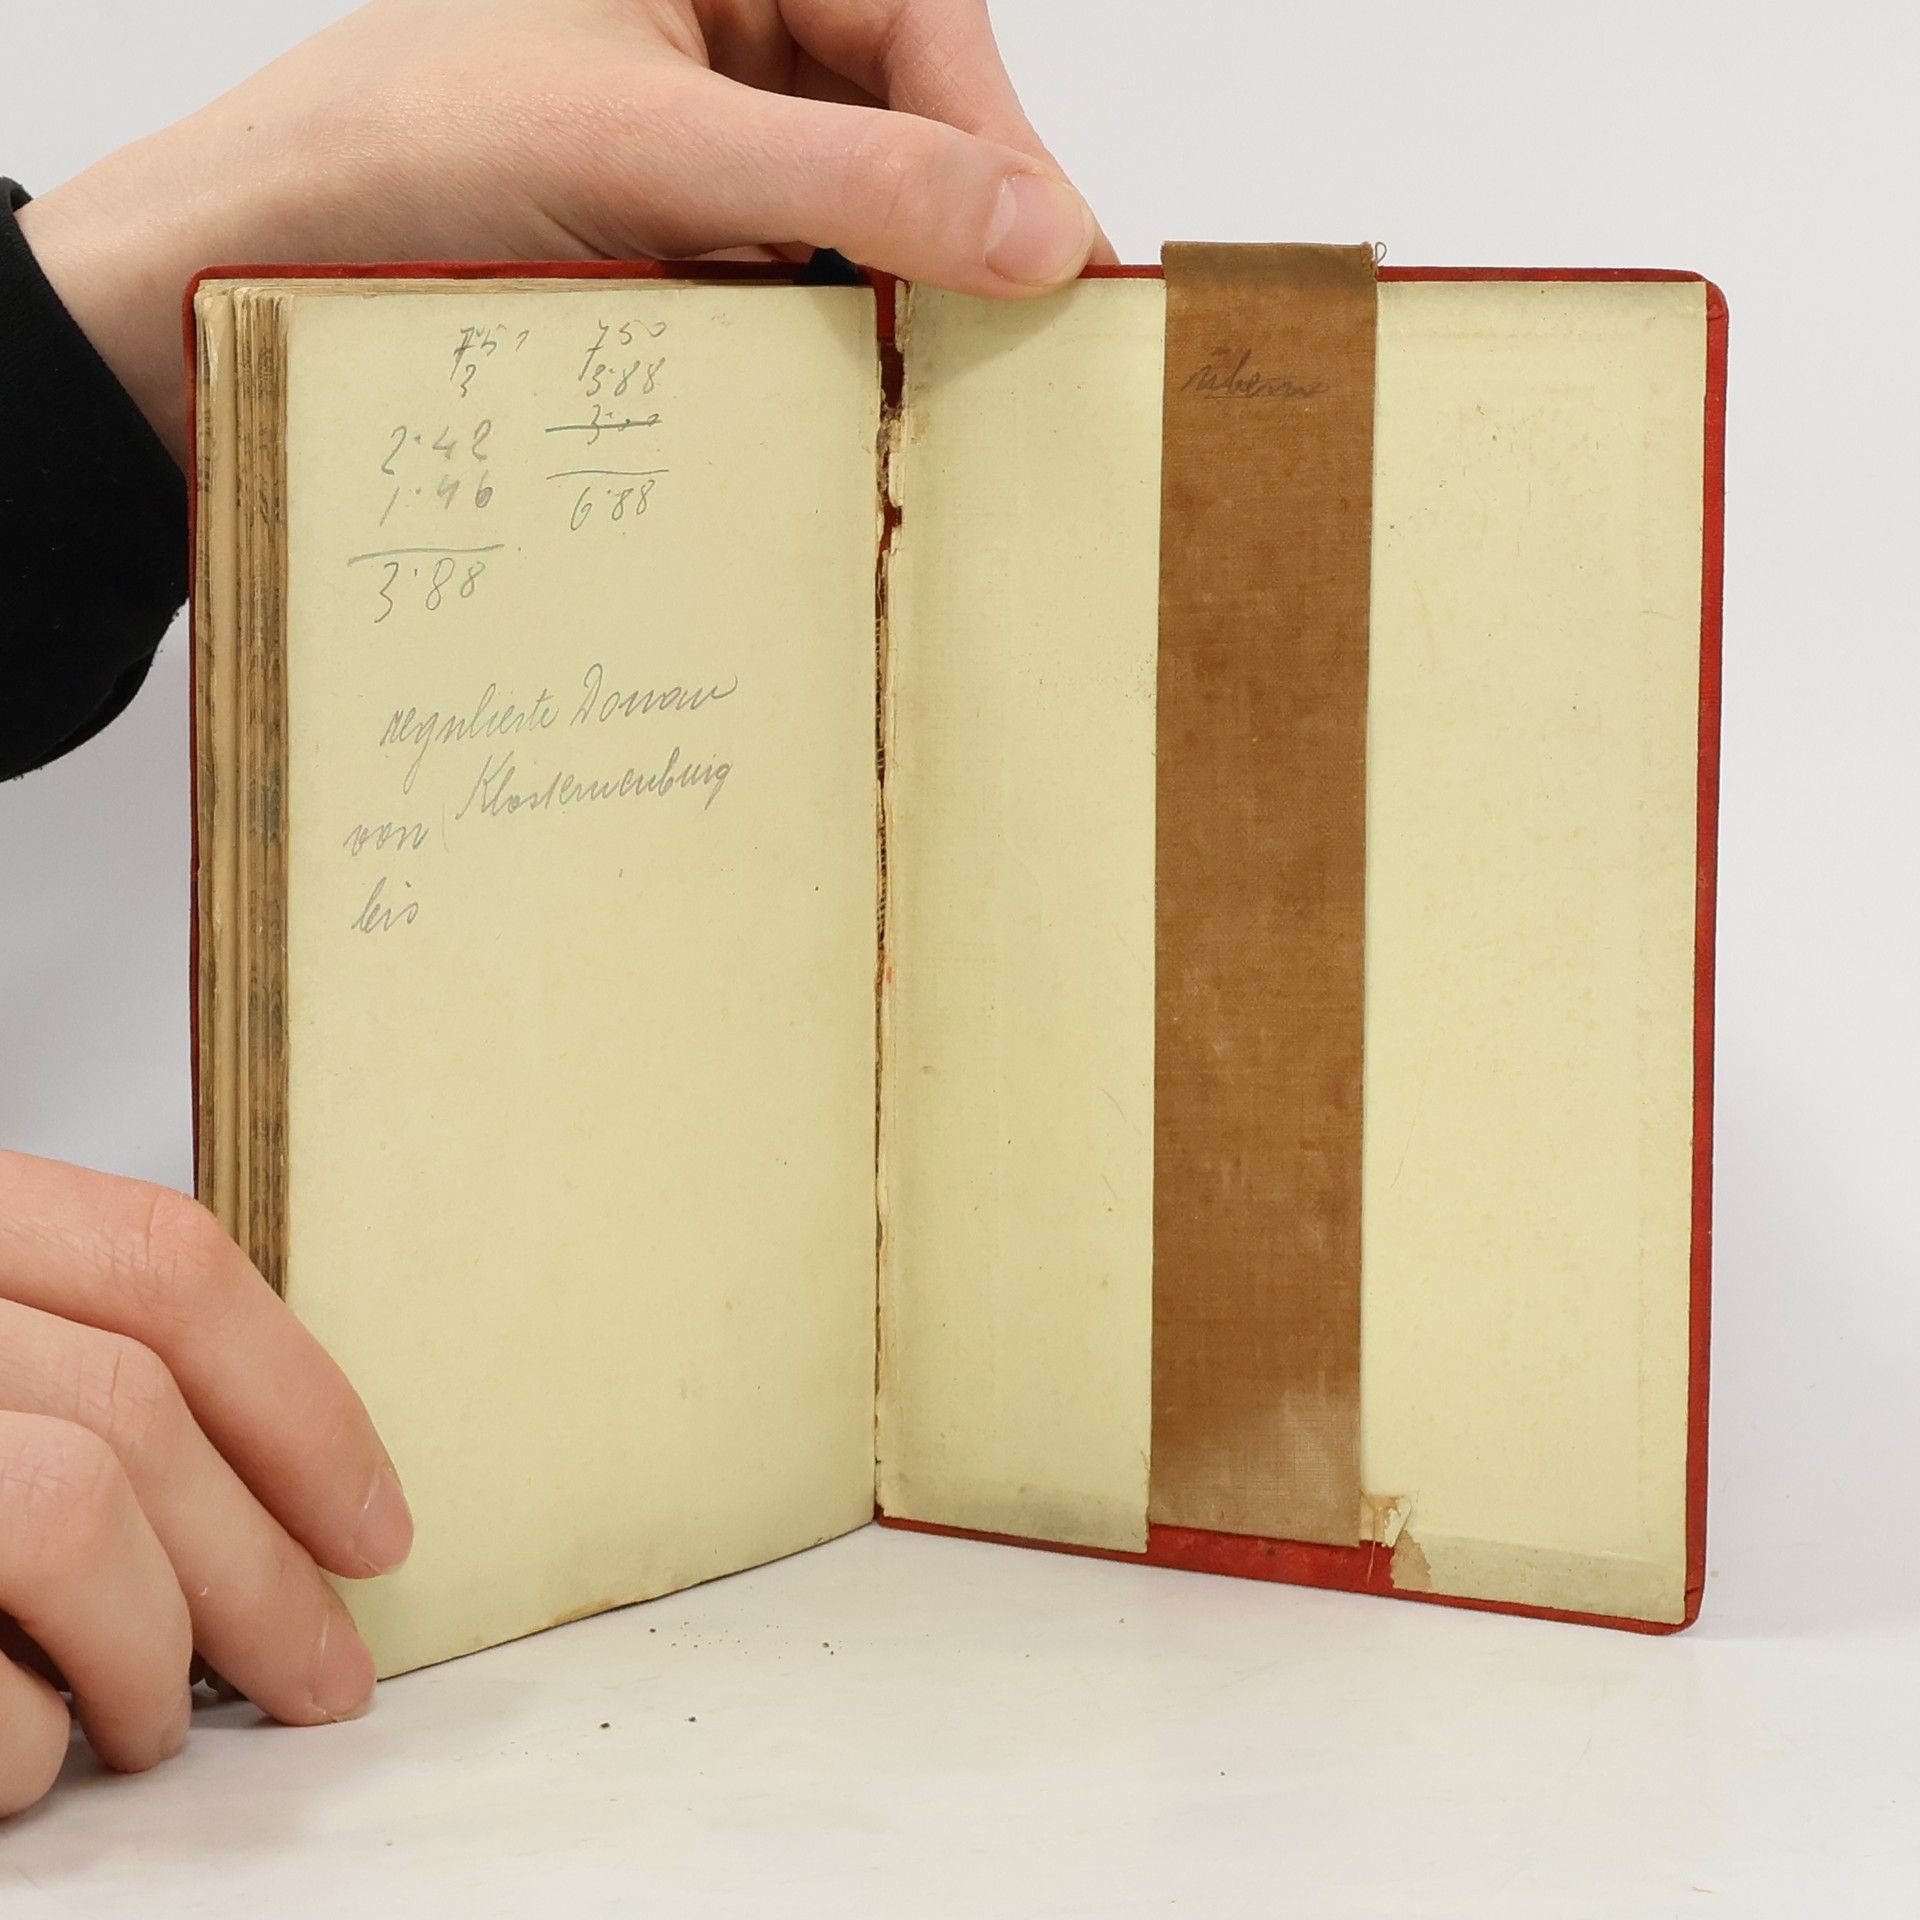 750
3
2·42
1·46
3·88
750
3·88
3·00
6·88
regulierte Donau
Klosterneuburg
von
bis